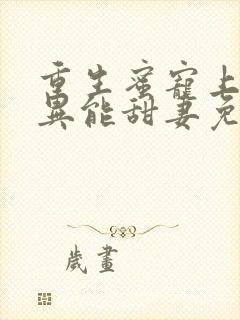 重生蜜寵上
異能甜妻免
歲畫